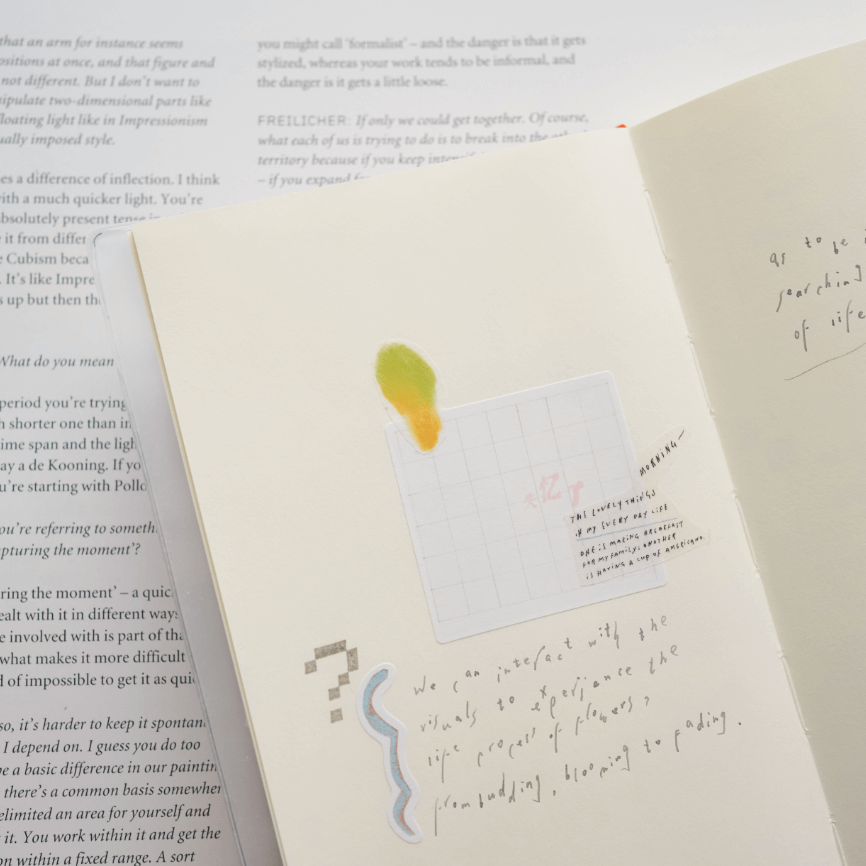 that an arm for instance seems
ositions at once, and that figure and
not different. But I don't want to
nipulate two-dimensional parts like
loating light like in Impressionism
ually imposed style.
es a difference of inflection. I think
with a much quicker light. You're
bsolutely present tense
it from differ
Cubism beca
. It's like Impre
s up but then th
What do you mean
period you're trying
shorter one than in
ime span and the ligh
ay a de Kooning. If yo
u're starting with Pollo
ou're referring to someth
pturing the moment'?
ring the moment' – a quic
ealt with it in different ways
e involved with is part of tha
what makes it more difficult
d of impossible to get it as quic
so, it's harder to keep it spontan
I depend on. I guess you do too
be a basic difference in our paintin
there's a common basis somewher
elimited an area for yourself and
it. You work within it and get the
on within a fixed range. A sort
you might call 'formalist' – and the danger is that it gets
stylized, whereas your work tends to be informal, and
the danger is it gets a little loose.
FREILICHER: If only we could get together. Of course,
what each of us is trying to do is to break into the
territory because if you keep
– if you expand
忆了
MORNING
THE LOVELY THINGS
IN MY EVERY DAY LIFE
ONE IS MAKING BREAKFAST
FOR MY FAMILY, ANOTHER
IS HAVING A CUP OF AMERICANO
?
We can interact with the
visuals to experiance the
life process of flowers,
from budding, blooming to fading.
as to be
searching
of life